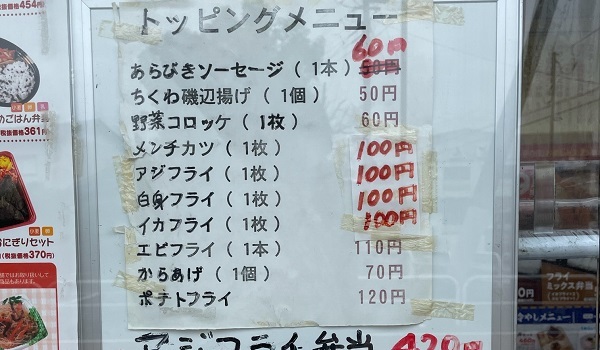 454円
トッピングメニュー
60円
あらびきソーセージ（1本）50円
ちくわ磯辺揚げ（1個） 50円
野菜コロッケ（1枚） 60円
メンチカツ（1枚） 100円
アジフライ（1枚） 100円
白身フライ（1枚） 100円
イカフライ（1枚） 100円
エビフライ（1本） 110円
からあげ（1個） 70円
ポテトフライ 120円
アジフライ弁当 420円
めごはん弁当
(税抜価格361円)
おにぎりセット
(税抜価格370円)
フライ
ミックス弁当
冷やしメニュー